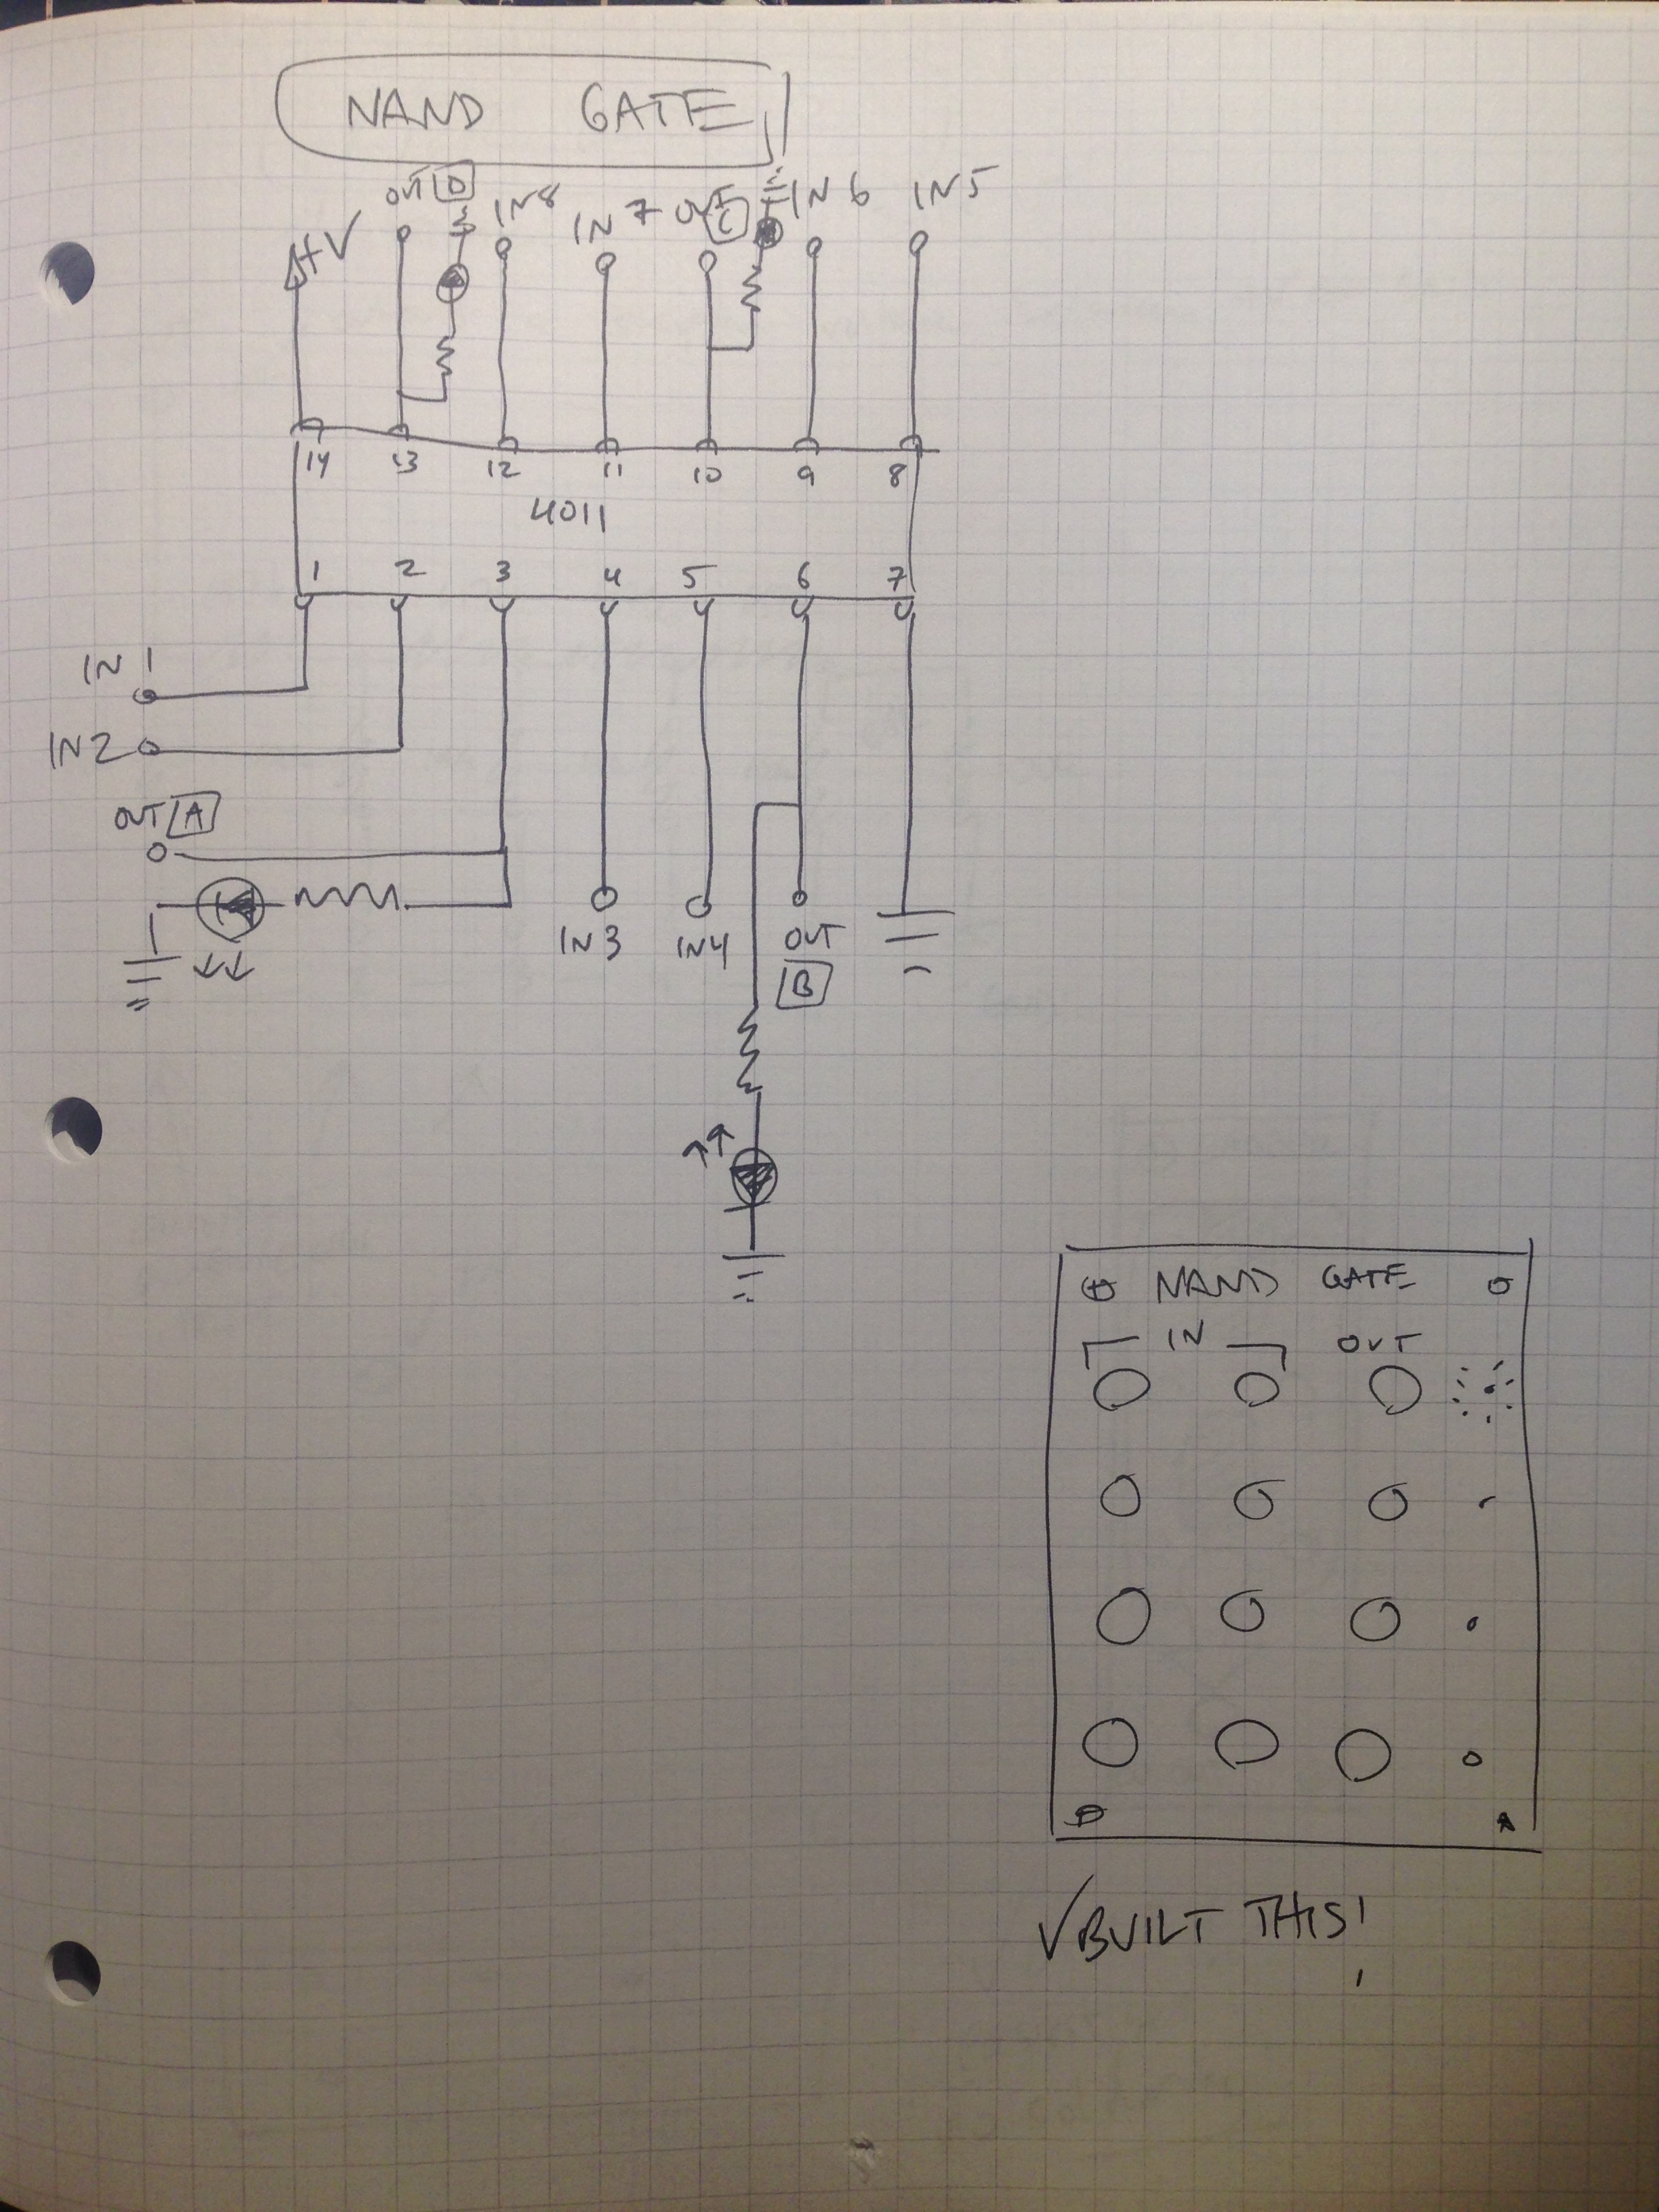 NAND GATE
OUT D
IN8
IN 7
OUT C
IN 6
IN5
+V
14 13 12 11 10 9 8
4011
1 2 3 4 5 6 7
IN 1
IN2
OUT A
IN3
IN4
OUT
B
NAND GATE
IN OUT
✓BUILT THIS!